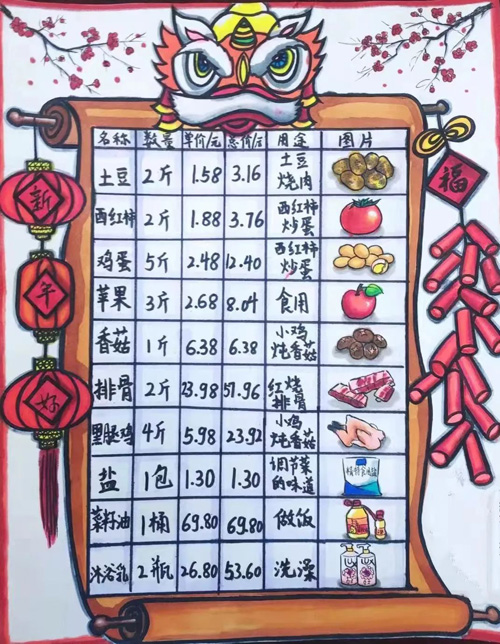 新
年
好
福
名称 数量 单价/元 总价/元 用途 图片
土豆 2斤 1.58 3.16 土豆烧肉
西红柿 2斤 1.88 3.76 西红柿炒蛋
鸡蛋 5斤 2.48 12.40 西红柿炒蛋
苹果 3斤 2.68 8.04 食用
香菇 1斤 6.38 6.38 小鸡炖香菇
排骨 2斤 23.98 57.96 红烧排骨
鸡 4斤 5.98 23.92 小鸡炖香菇
盐 1包 1.30 1.30 调节菜的味道
菜籽油 1桶 69.80 69.80 做饭
沐浴乳 2瓶 26.80 53.60 洗澡
LUX